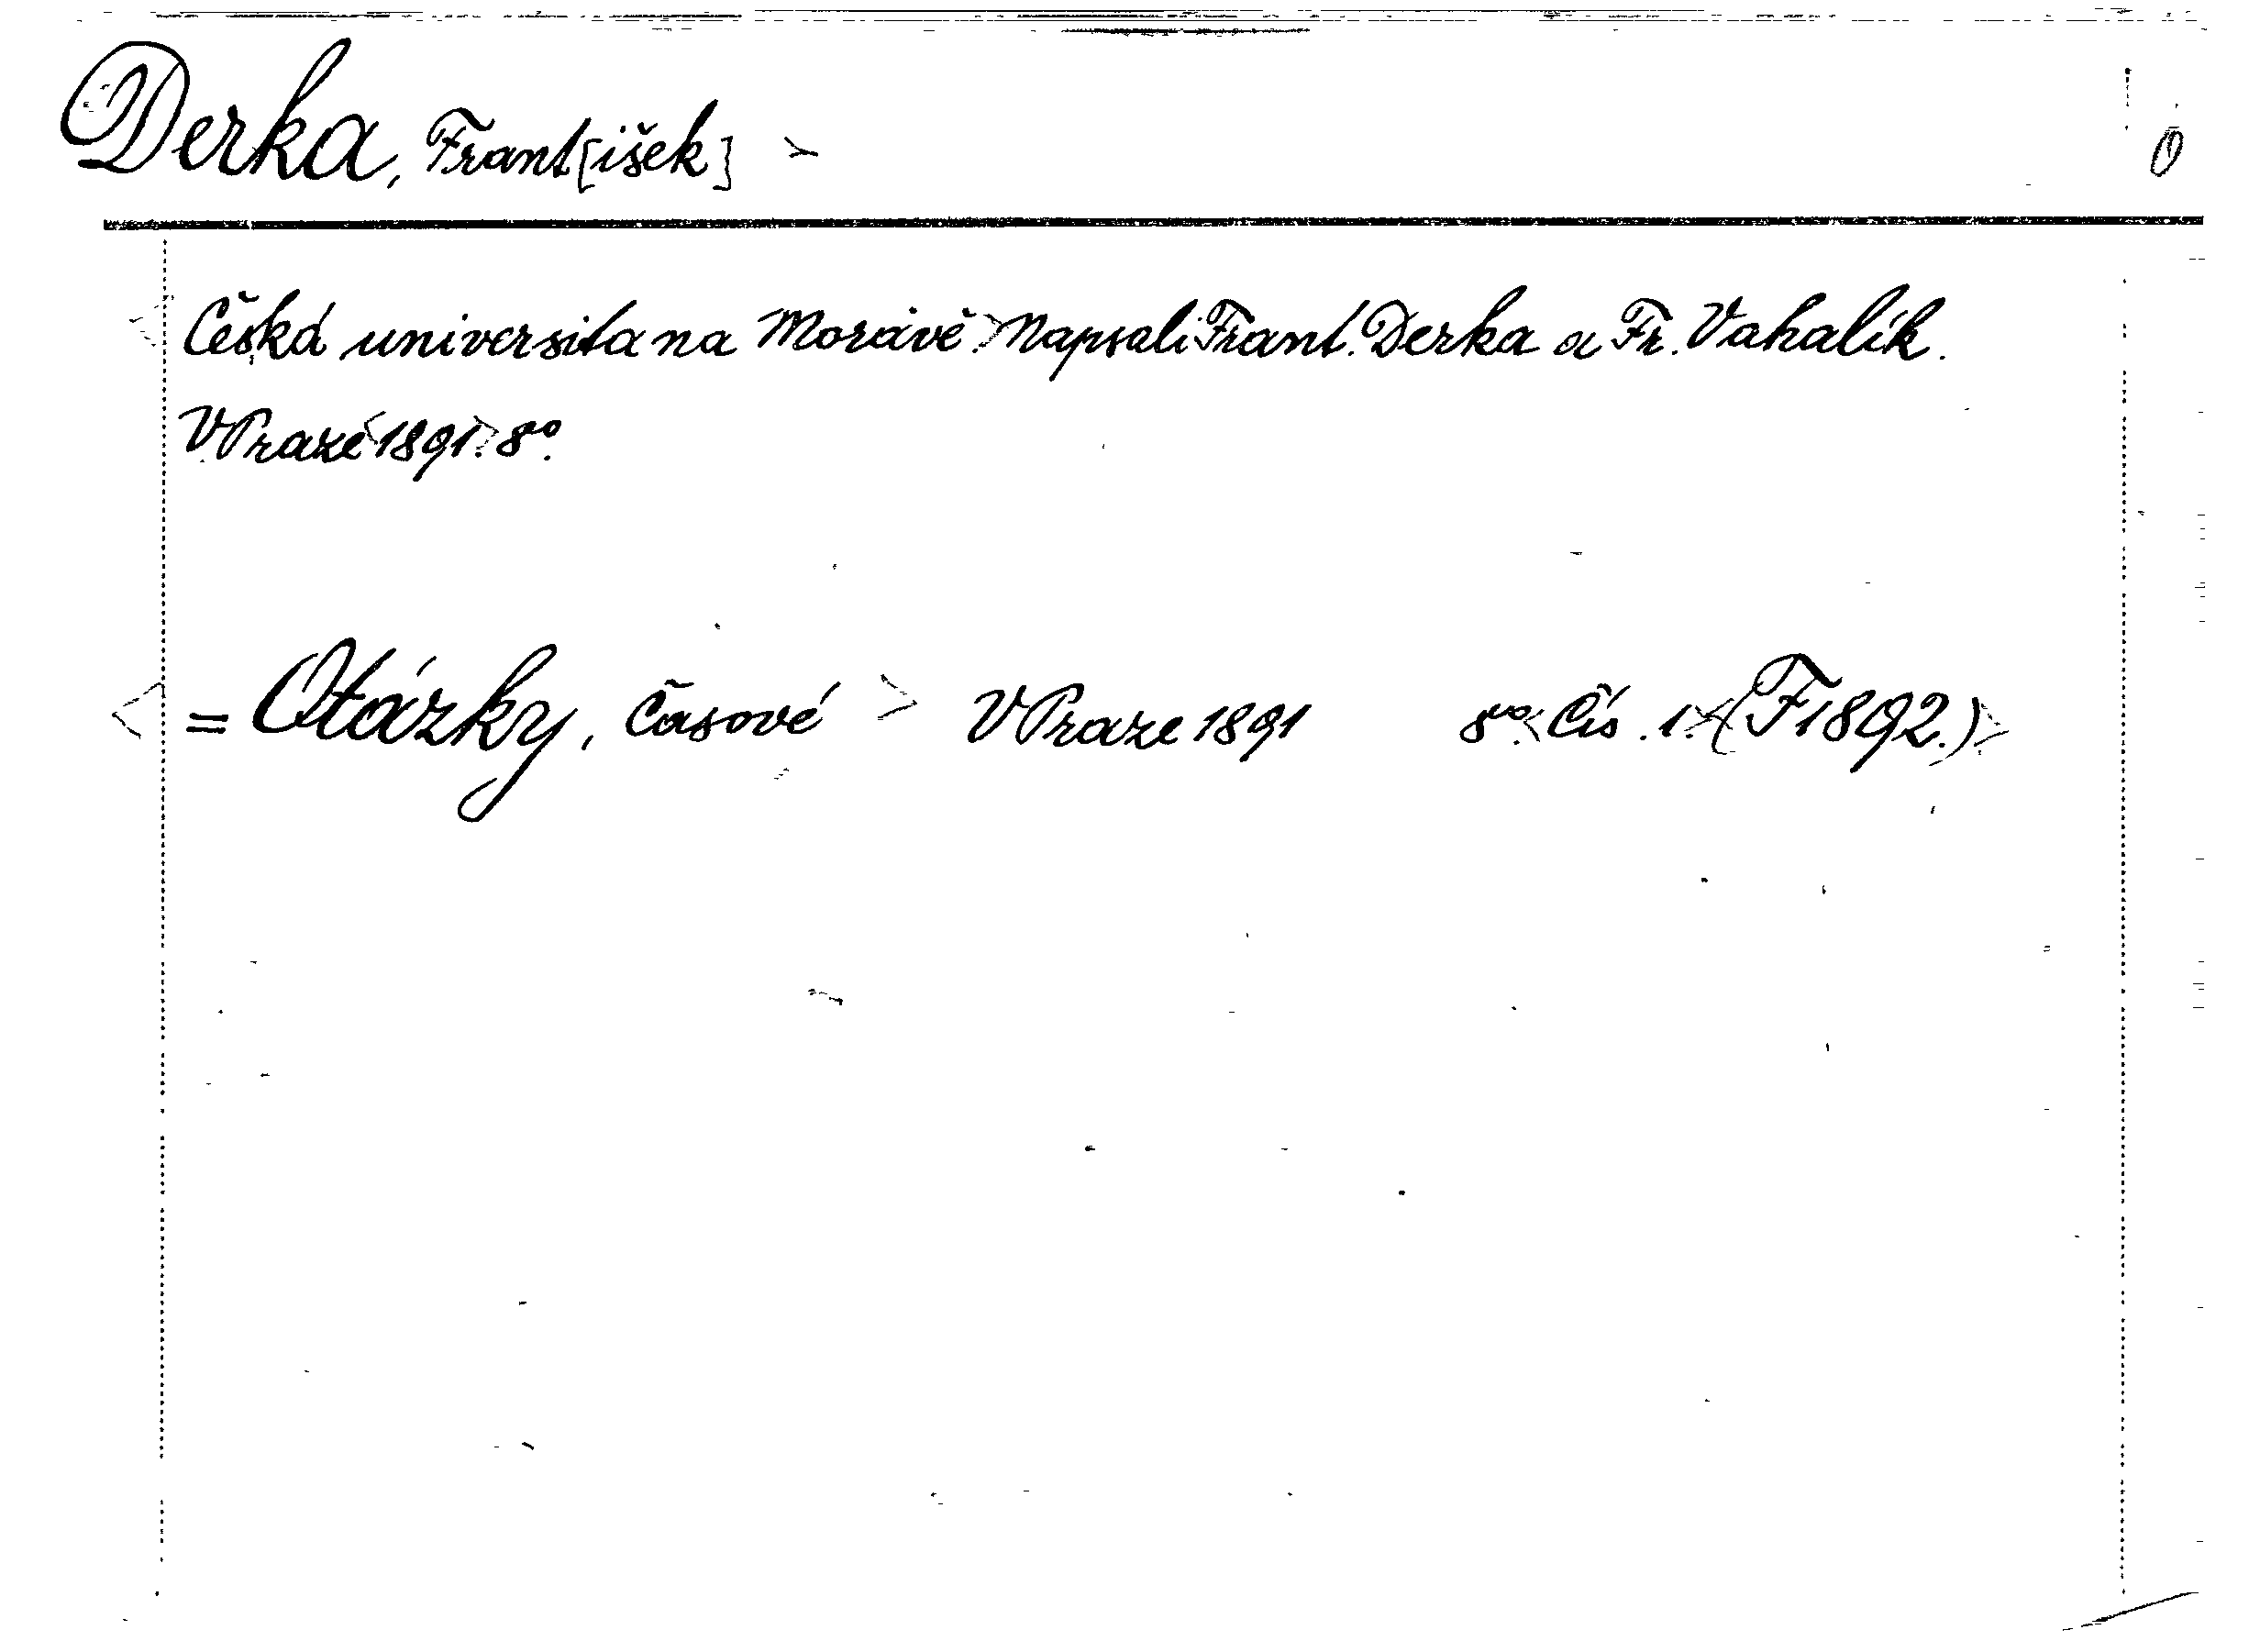 Derka, Frant[išek] 0
Česká universita na Moravě. Napsali Frant. Derka a Fr. Vahalík.
V Praze 1891. 8°.
= Otázky, Časové V Praze 1891 8°. Čís. 1. (F 1892.)